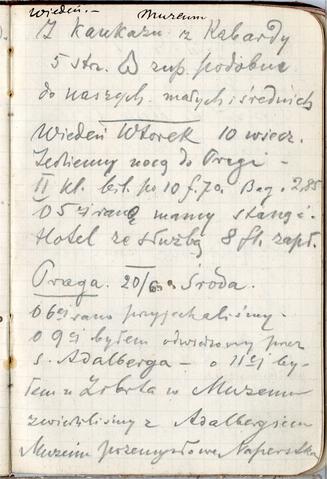 Wiedeń. — Muzeum
Z Kaukazu z Kabardy
5 str. zup. podobne
do naszych małych i średnich
Wiedeń Wtorek 10 wiecz.
Jedziemy nocą do Pragi —
II kl. bil. po 10 f. 70. Bag. 2,85
O 5 zrana mamy stanąć.
Hotel ze służbą 8 fl. zapł.
Praga. 20/6. Środa.
O 6ej rano przyjechaliśmy.
O 9ej byłem odwiedzony przez
s. Adalberga — o 11ej by-
łem u Zibrta w Muzeum
zwiedziliśmy z Adalbergiem
Muzeum przemysłowe Naperstka